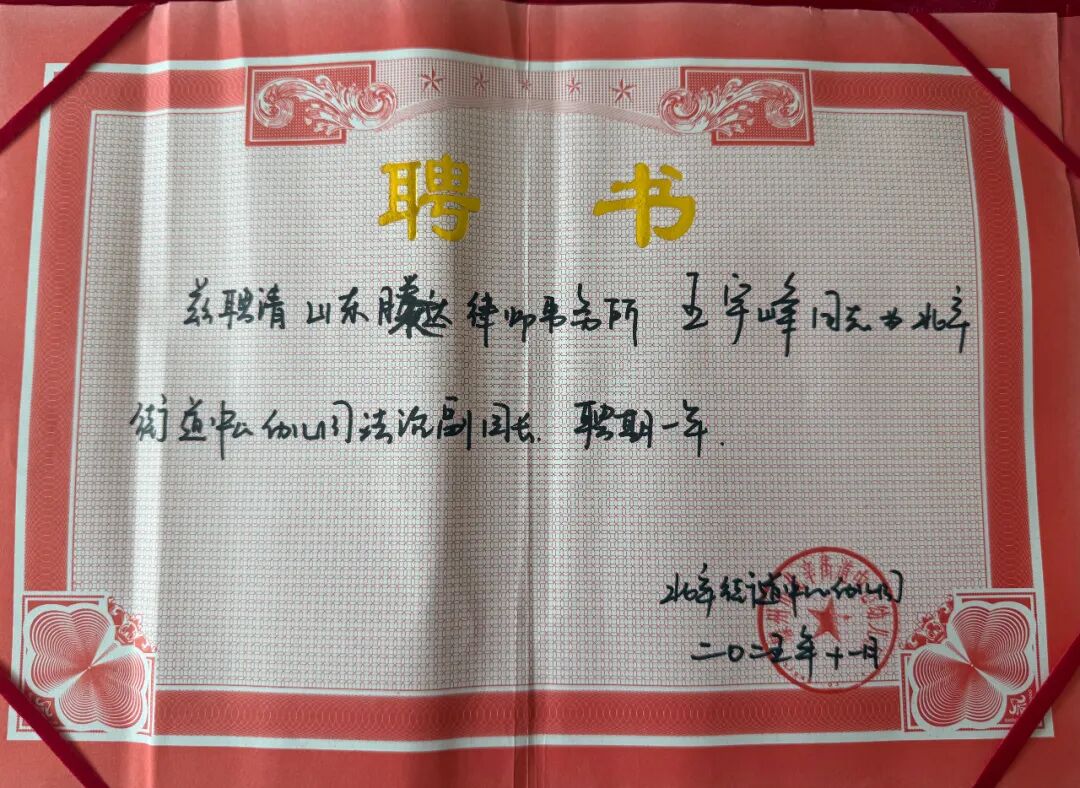 聘书
兹聘请山东达律师事务所 王宇峰同志为北辛
街道中心幼儿园法治副园长.聘期一年.
北辛街道中心幼儿园
二〇二五年十一月